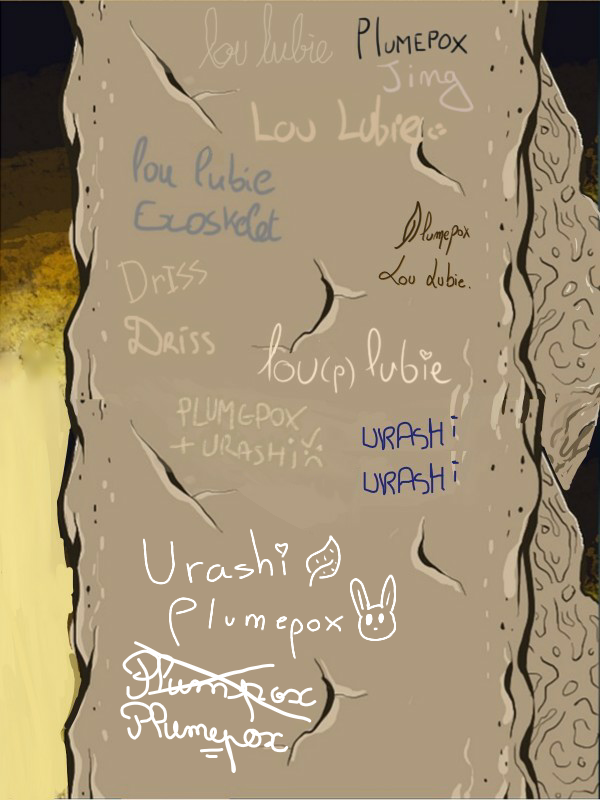 lou lubie
PLUMEPOX
Jing
Lou Lubie
lou lubie
Exoskelet
Plumepox
Lou Lubie.
DrISS
Driss
lou(p) lubie
PLUMEPOX
+ URASHi
URASHi
URASHi
Urashi
Plumepox
Plumpox
Plumepox